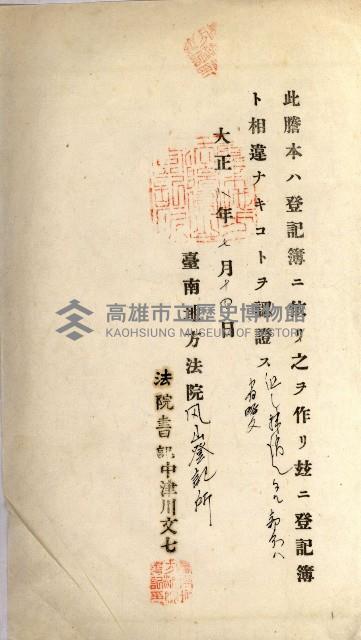 此謄本ハ登記簿ニ依リ之ヲ作リ玆ニ登記簿
ト相違ナキコトヲ認證ス
但シ抹消
ハ
省略ス
大正八年七月十四日
臺南地方法院鳳山登記所
法院書記中津川文七
高雄市立歷史博物館
KAOHSIUNG MUSEUM OF HISTORY